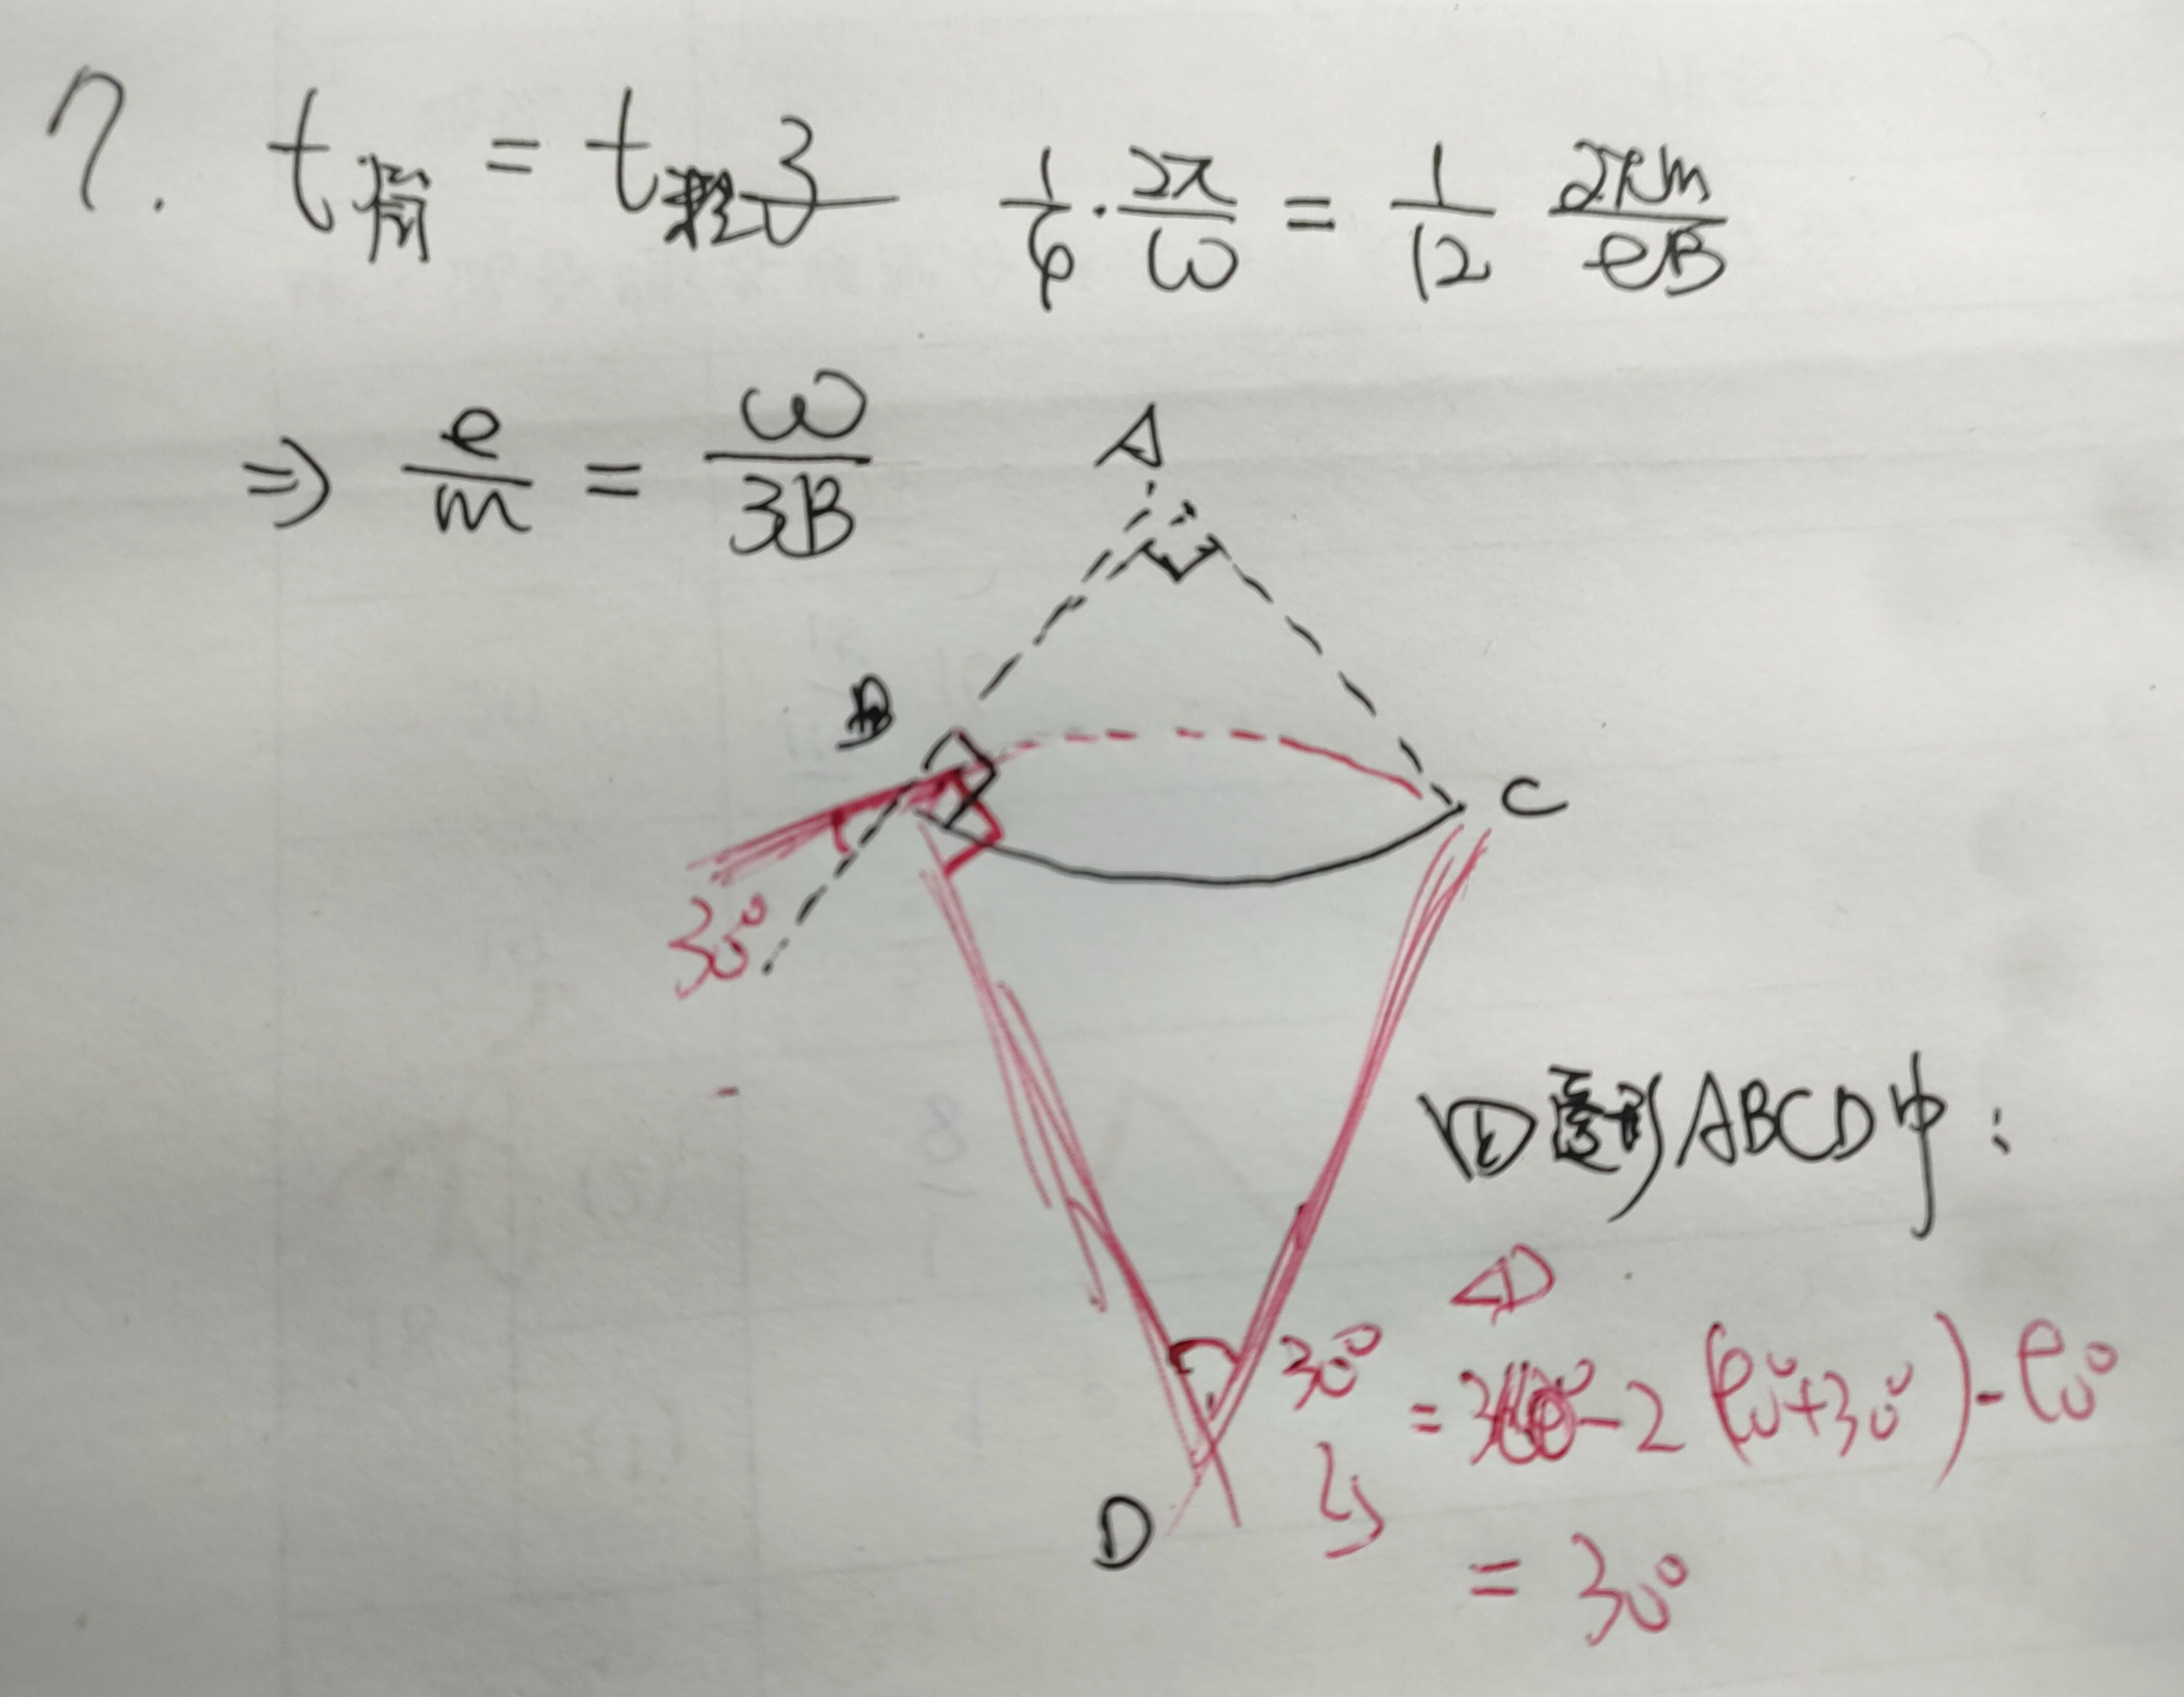 7. t筒 = t粒子 1/6 · 2π/ω = 1/12 2πm/eB
⇒ e/m = ω/3B
A
B
C
30°
四边形ABCD中:
∠D
30° = 360° - 2(90°+30°) - 90°
= 30°
D